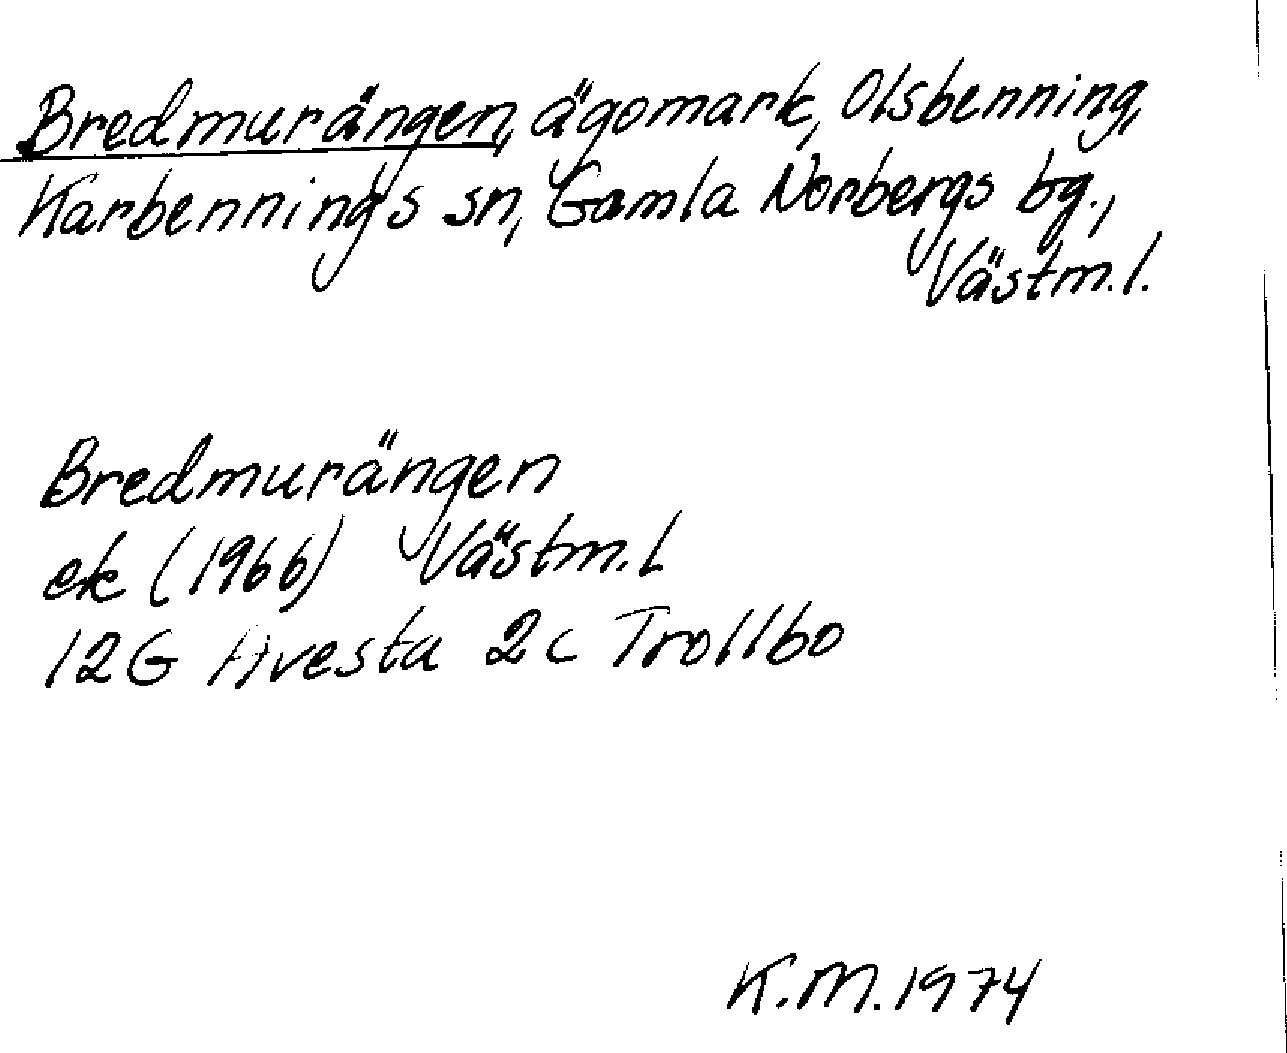 Bredmurängen, ägomark, Olsbenning,
Karbennings sn, Gamla Norbergs bg.,
Västm.l.
Bredmurängen
ek (1966) Västm.l
12G Avesta 2c Trollbo
K.M.1974